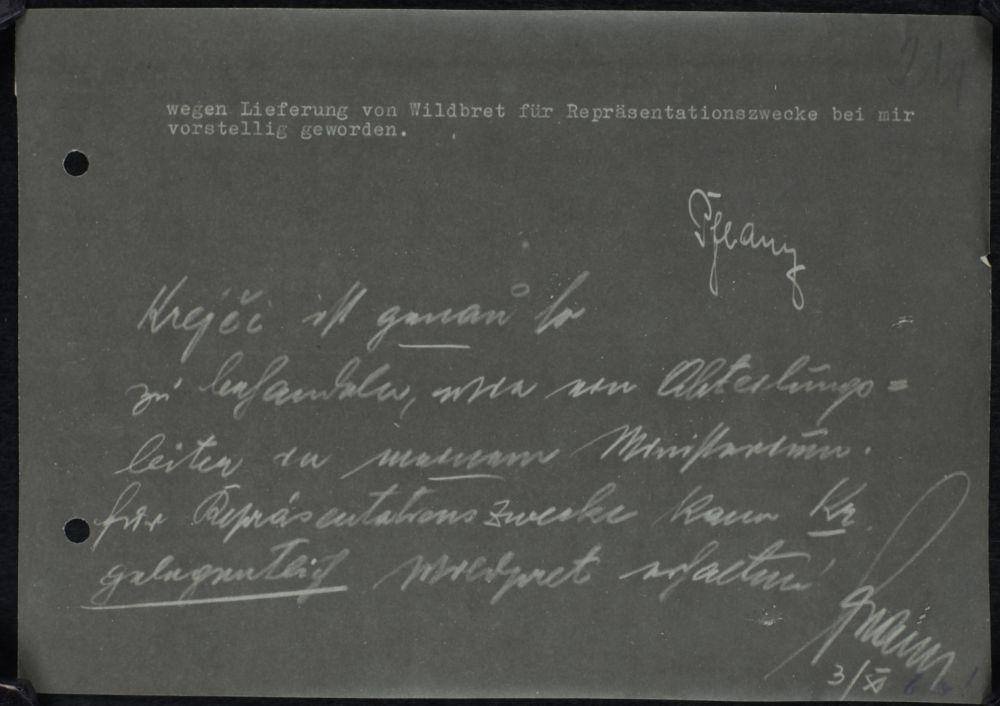 wegen Lieferung von Wildbret für Repräsentationszwecke bei mir
vorstellig geworden.
Krejči ist genau so
zu behandeln, wie ein Abteilungs=
leiter in meinem Ministerium.
Für Repräsentationszwecke kann Kr.
gelegentlich Wildpret erhalten!
3/X